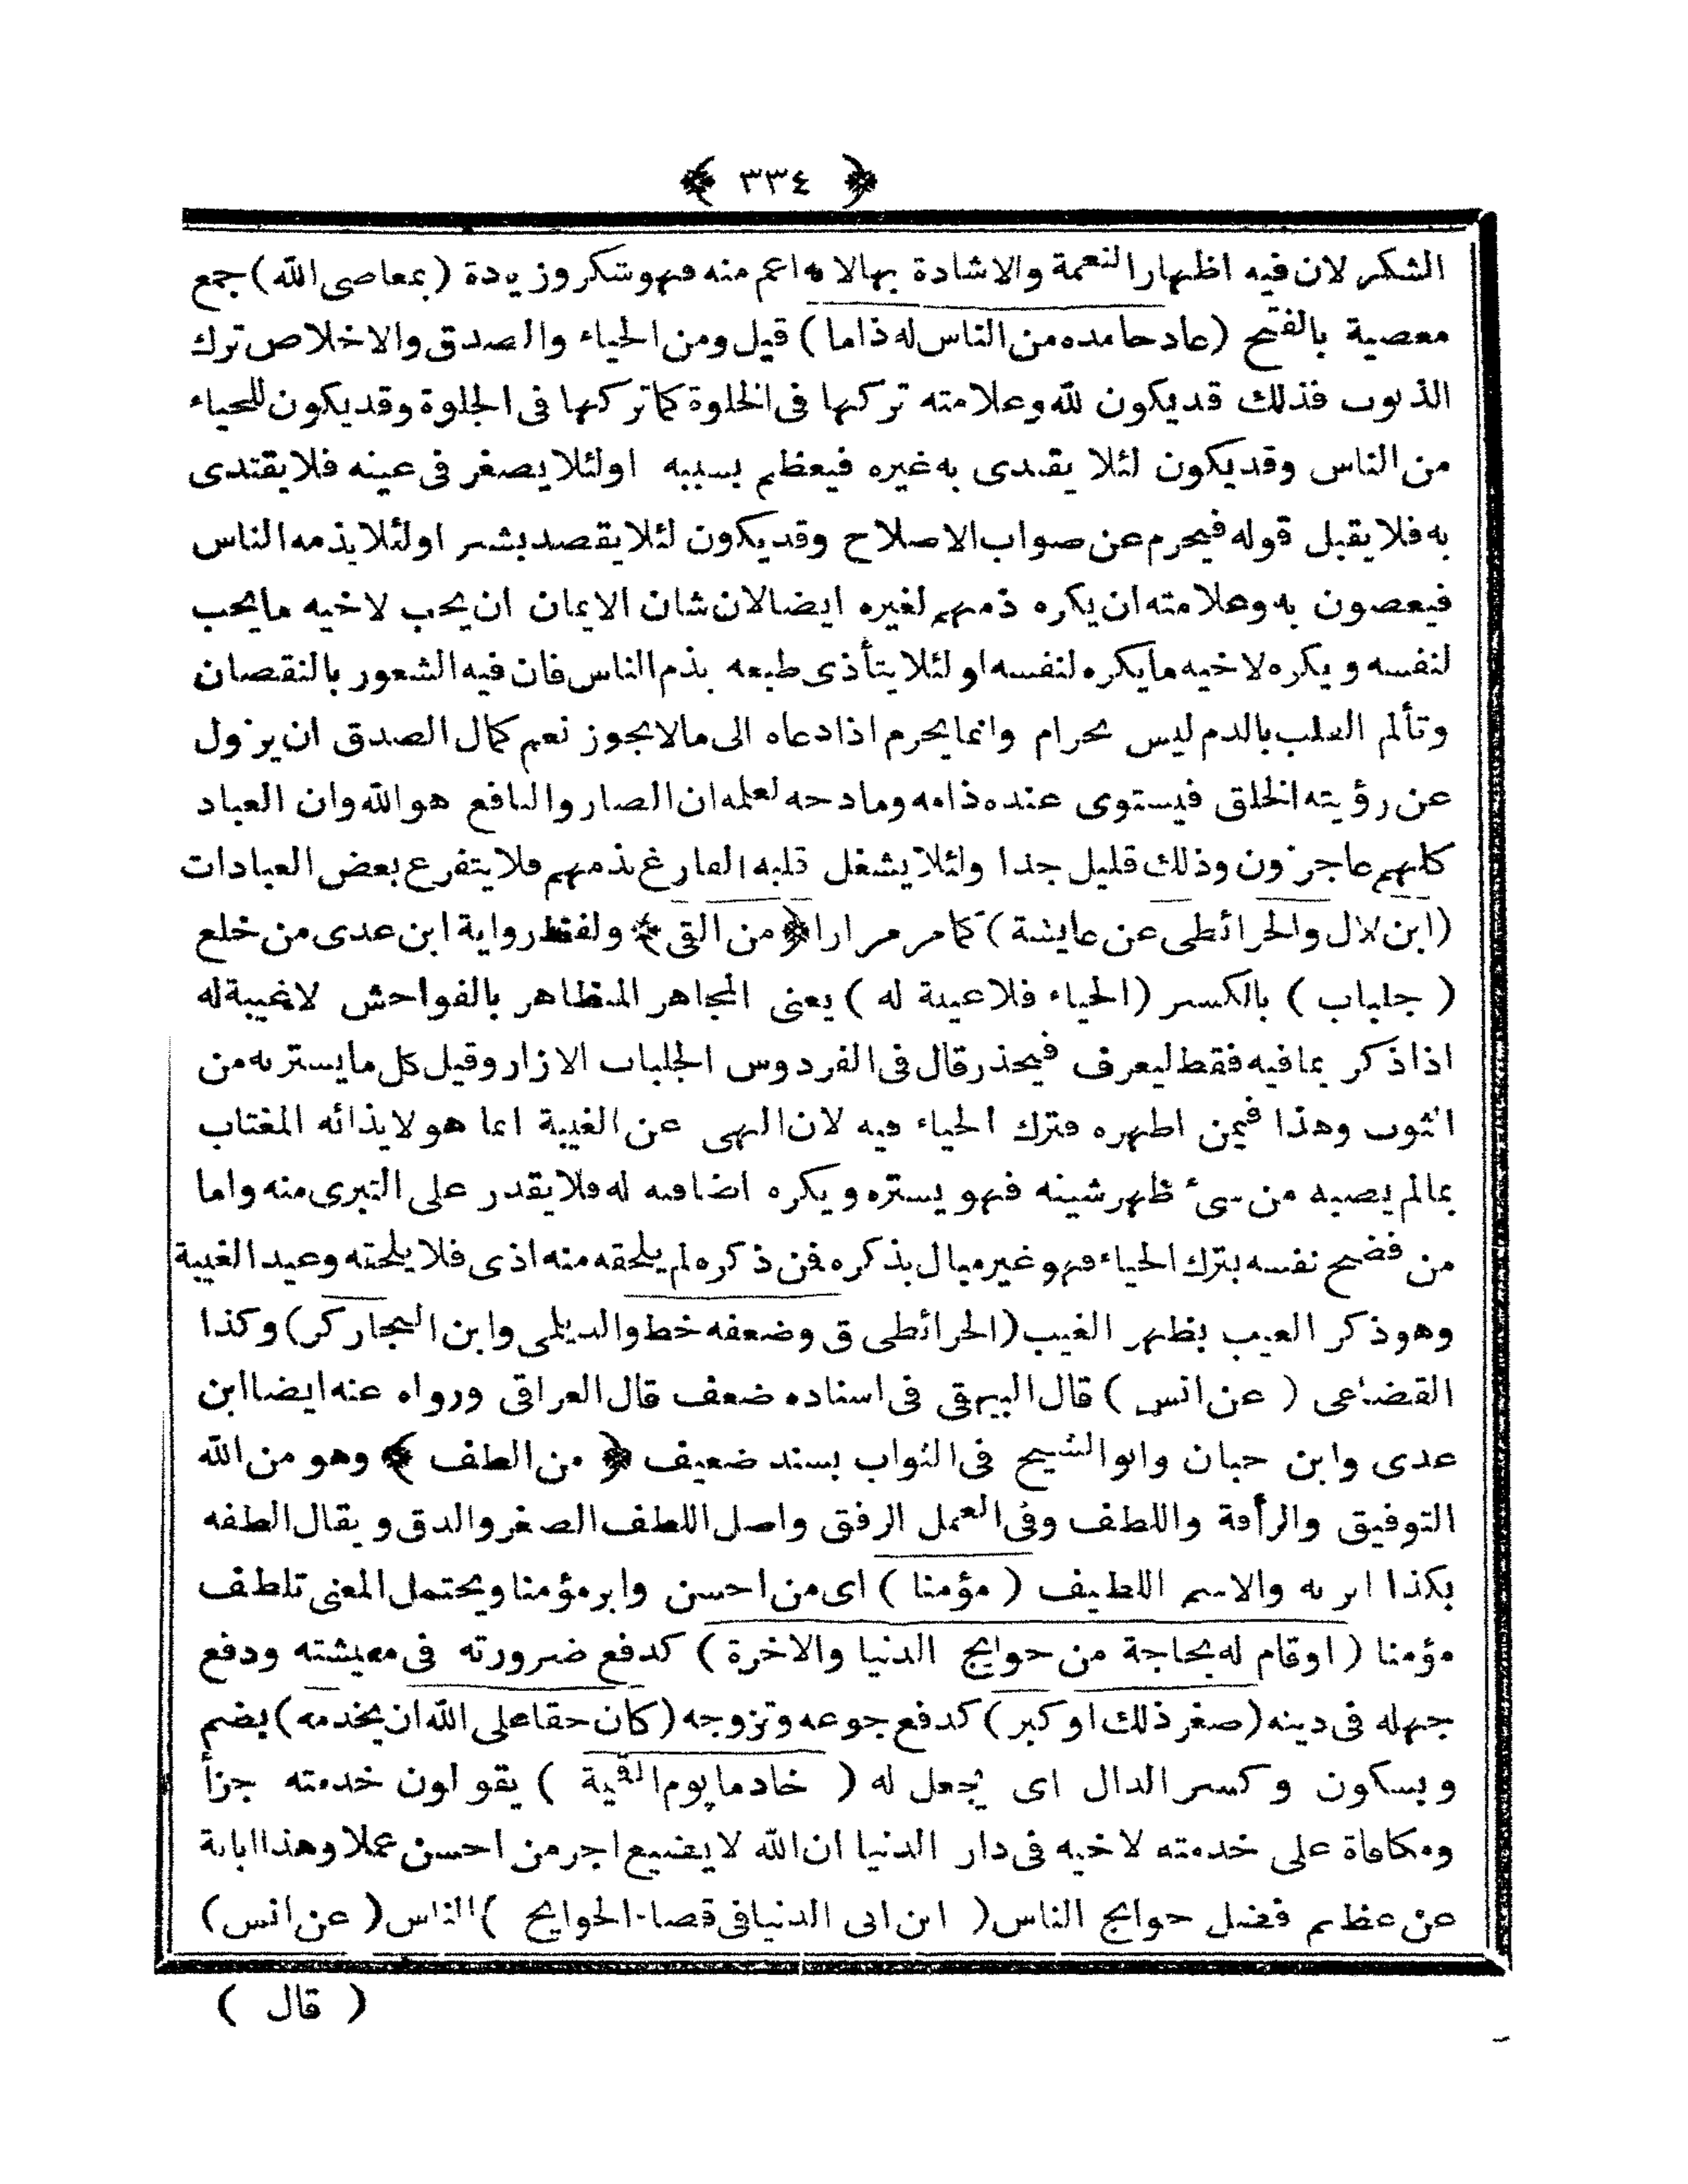 ﴿ ٣٣٤ ﴾
الشكر لان فيه اظهار النعمة والاشادة بها لانه اعم منه فهو شكر وزيادة (بمعاصى الله) جمع
معصية بالفتح (عاد حامده من الناس له ذاما) قيل ومن الحياء والصدق والاخلاص ترك
الذنوب فذلك قد يكون لله وعلامته تركها فى الخلوة كما تركها فى الجلوة وقد يكون للحياء
من الناس وقد يكون لئلا يقتدى به غيره فيعظم بسببه اولئلا يصغر فى عينه فلا يقتدى
به فلا يقبل قوله فيحرم عن صواب الاصلاح وقد يكون لئلا يقصد بشر اولئلا يذمه الناس
فيعصون به وعلامته ان يكره ذمهم لغيره ايضا لان شان الايمان ان يحب لاخيه ما يحب
لنفسه ويكره لاخيه ما يكره لنفسه او لئلا يتأذى طبعه بذم الناس فان فيه الشعور بالنقصان
وتألم القلب بالذم ليس بحرام وانما يحرم اذا دعاه الى مالا يجوز نعم كمال الصدق ان يزول
عن رؤيته الخلق فيستوى عنده ذامه ومادحه لعلمه ان الضار والنافع هو الله وان العباد
كلهم عاجزون وذلك قليل جدا ولئلا يشغل قلبه الفارغ بذمهم فلا يتفرغ بعض العبادات
(ابن لال والخرائطى عن عايشة) كما مر مرارا ﴿ من القى ﴾ ولفظ رواية ابن عدى من خلع
( جلباب ) بالكسر (الحياء فلا غيبة له ) يعنى المجاهر المتظاهر بالفواحش لا غيبة له
اذا ذكر بما فيه فقط ليعرف فيحذر قال فى الفردوس الجلباب الازار وقيل كل ما يستتر به من
الثوب وهذا فيمن اظهره فترك الحياء فيه لان النهى عن الغيبة انما هو لايذائه المغتاب
بمالم يصبه من شئ ظهر شينه فهو يستره ويكره اضافته له فلا يقدر على التبرى منه واما
من فضح نفسه بترك الحياء فهو غير مبال بذكره فمن ذكره لم يلحقه منه اذى فلا يلحقه وعيد الغيبة
وهو ذكر العيب بظهر الغيب (الخرائطى ق وضعفه خط والديلمى وابن النجار كر) وكذا
القضاعى ( عن انس ) قال البيهقى فى اسناده ضعف قال العراقى ورواه عنه ايضا ابن
عدى وابن حبان وابو الشيخ فى الثواب بسند ضعيف ﴿ من الطف ﴾ وهو من الله
التوفيق والرأفة واللطف وفى العمل الرفق واصل اللطف الصغر والدق ويقال الطفه
بكذا ابر به والاسم اللطيف ( مؤمنا ) اى من احسن وابر مؤمنا ويحتمل المعنى تلطف
مؤمنا ( اوقام له بحاجة من حوايج الدنيا والاخرة ) كدفع ضرورته فى معيشته ودفع
جهله فى دينه (صغر ذلك او كبر) كدفع جوعه وتزوجه (كان حقا على الله ان يخدمه) بضم
وبسكون وكسر الدال اى يجعل له ( خادما يوم القيمة ) يقولون خدمته جزأ
ومكافاة على خدمته لاخيه فى دار الدنيا ان الله لا يضيع اجر من احسن عملا وهذا ابانة
عن عظم فضل حوايج الناس ( ابن ابى الدنيا فى قضاء الحوايج ) الناس ( عن انس )
( قال )